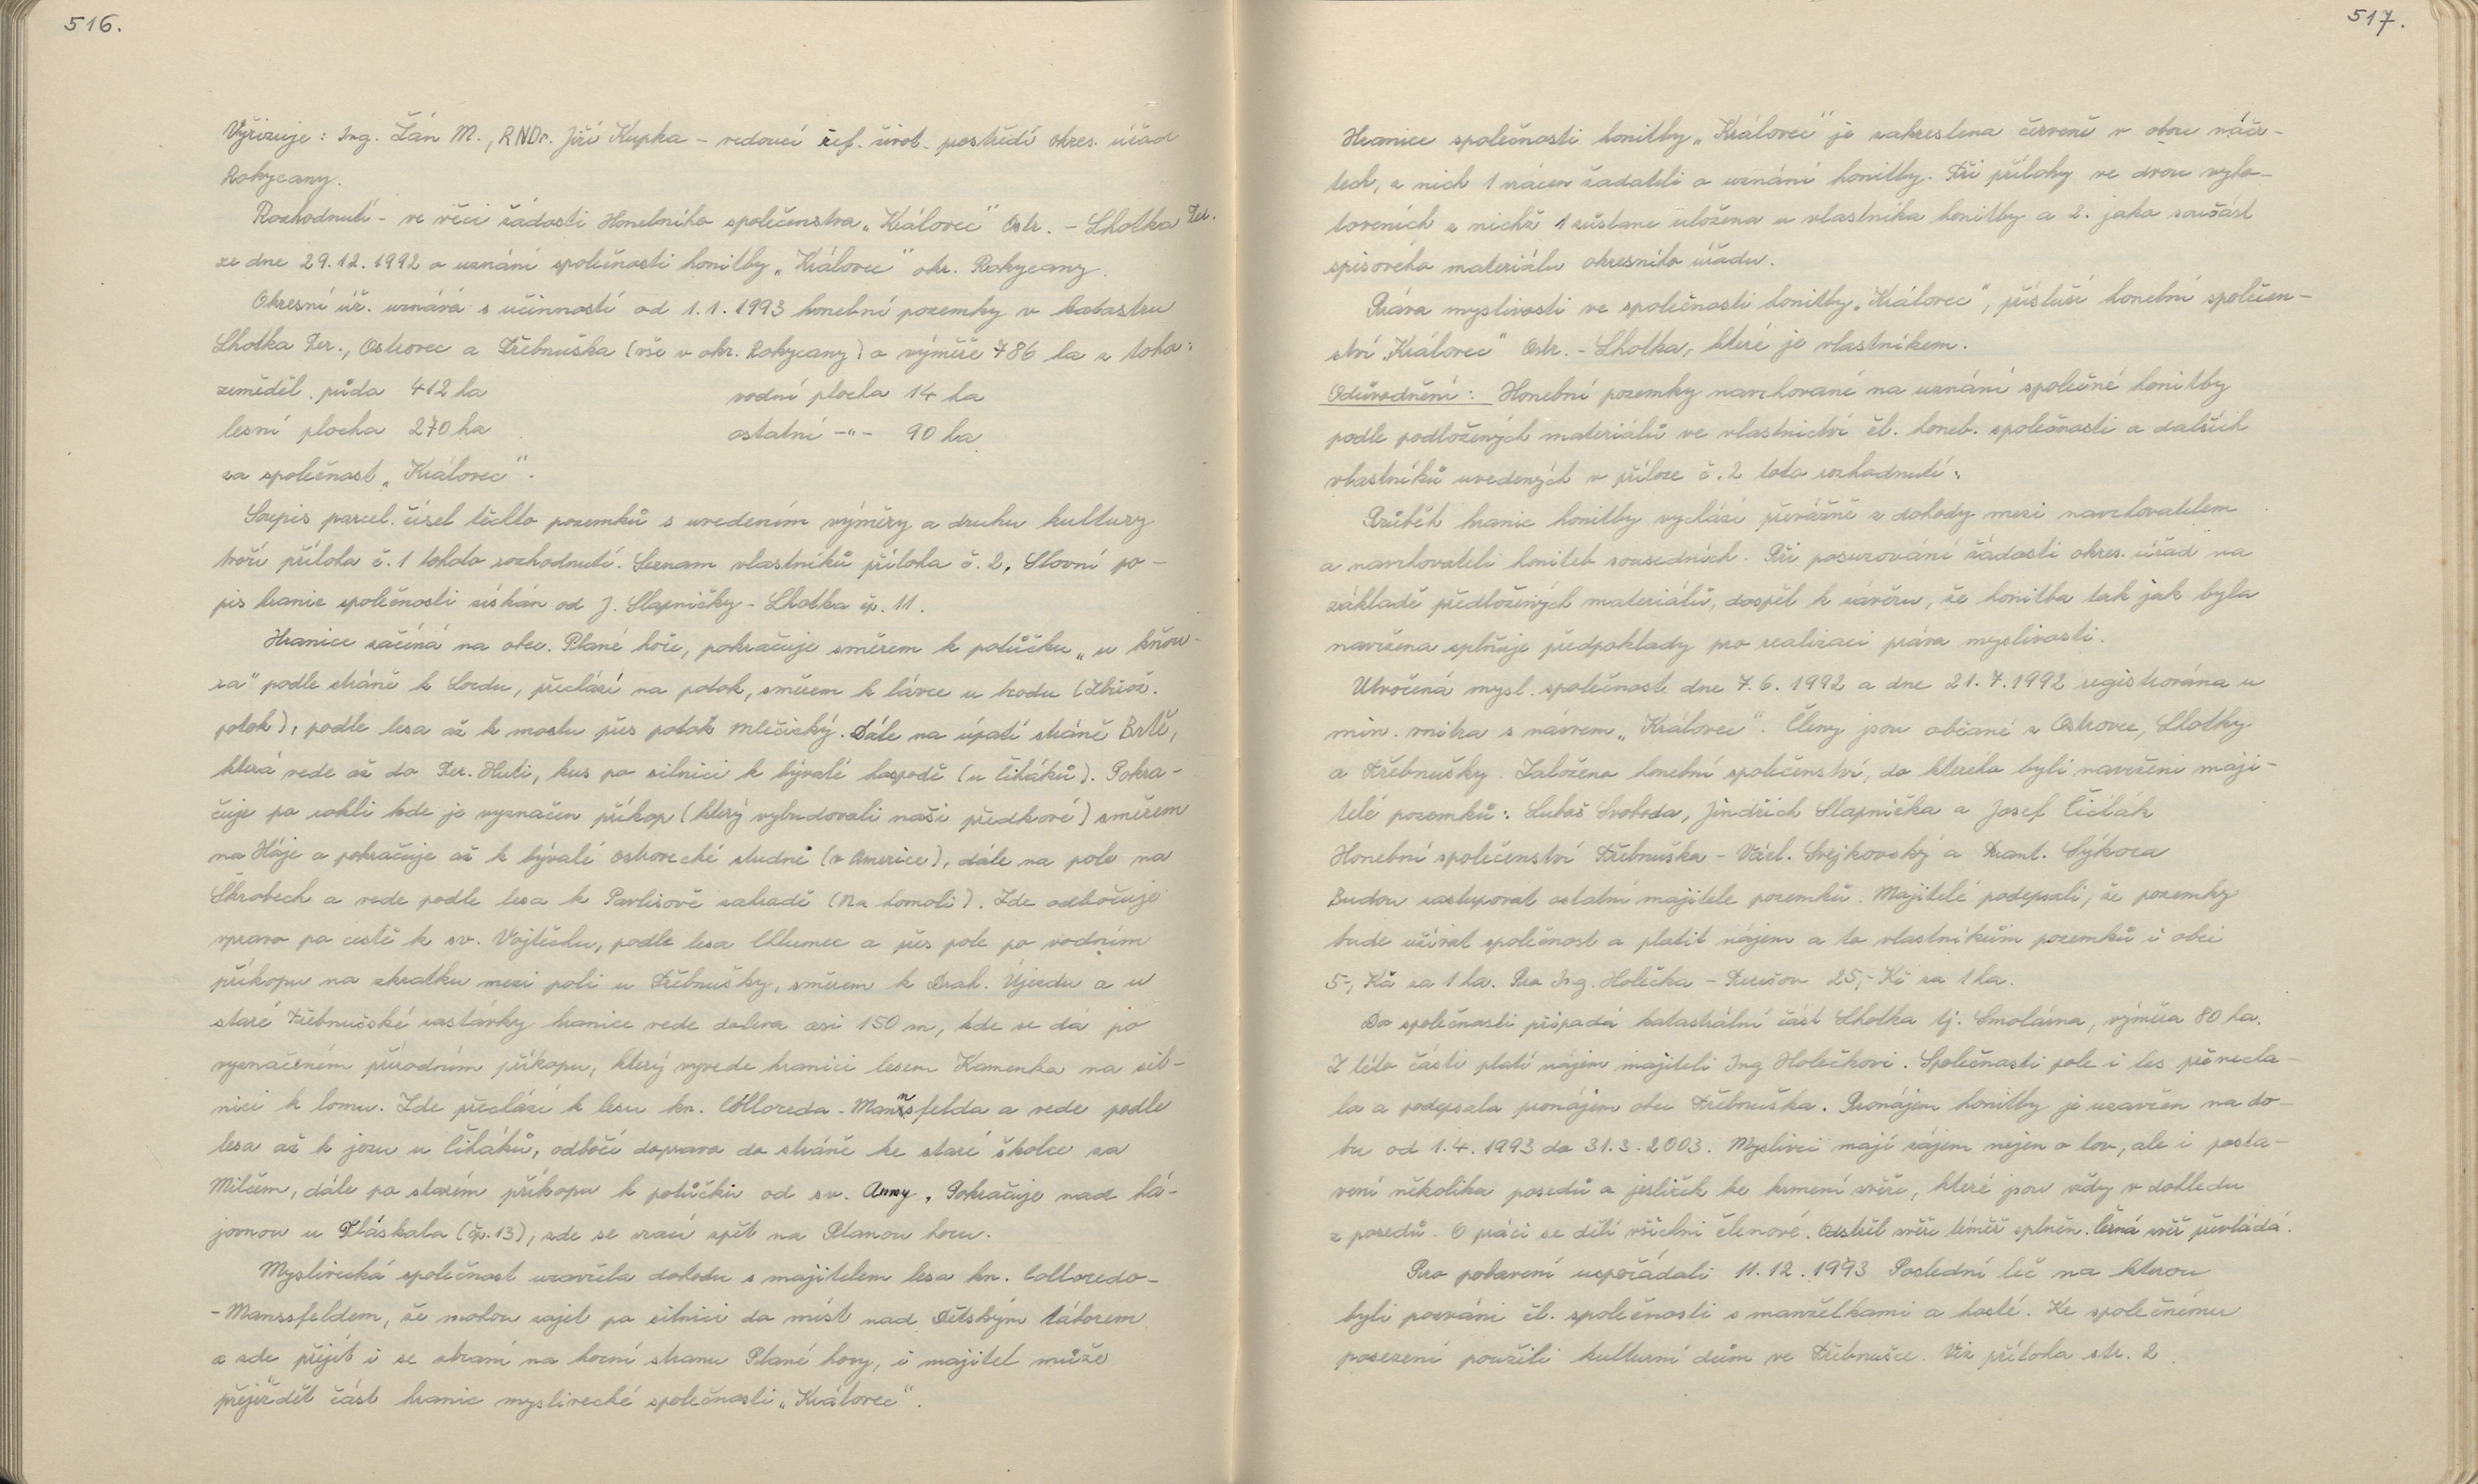 516.
Vyřizuje: Ing. Žán M., RNDr. Jiří Kupka - vedoucí ref. život. prostředí okres. úřad
Rokycany.
Rozhodnutí - ve věci žádosti Honebního společenstva „Královec" Ostr. - Lhotka Ter.
ze dne 29.12.1992 o uznání společnosti honitby „Královec" okr. Rokycany.
Okresní úř. uznává s učinností od 1.1.1993 honební pozemky v katastru
Lhotka Ter., Ostrovec a Třebnuška (vše v okr. Rokycany) o výměře 786 ha z toho:
zeměděl. půda 412 ha vodní plocha 14 ha
lesní plocha 270 ha ostatní -"- 90 ha
za společnost „Královec".
Soupis parcel. čísel těchto pozemků s uvedením výměry a druhu kultury
tvoří příloha č. 1 tohdo rozhodnutí. Seznam vlastníků příloha č. 2. Slovní po-
pis hranic společnosti získán od J. Slapničky - Lhotka čp. 11.
Hranice začíná na obec. Plané hoře, pokračuje směrem k potůčku „u kňou-
ra" podle stráně k Sordu, přechází na potok, směrem k lávce u brodu (Zbirož.
potok), podle lesa až k mostu přes potok Mlečický. Dále na úpatí stráně Brtě,
která vede až do Ter. Huti, kus po silnici k bývalé hospodě (u čiháků). Pokra-
čuje po rokli kde je vyznačen příkop (který vybudovali naši předkové) směrem
na Háje a pokračuje až k bývalé ostrovecké studně (v Americe), dále na pole na
Škrobech a vede podle lesa k Pavlisově zahradě (Na homoli). Zde odbočuje
vpravo po cestě k sv. Vojtěchu, podle lesa Chlumec a přes pole po vodním
příkopu na zkratku mezi poli u Třebnušky, směrem k Drah. Újezdu a u
staré Třebnušské zastávky hranice vede doleva asi 150 m, kde se dá po
vyznačeném přírodním příkopu, který vyvede hranici lesem Kamenka na sil-
nici k lomu. Zde přechází k lesu kn. Colloreda - Mannsfelda a vede podle
lesa až k jezu u Čiháků, odbočí doprava do stráně ke staré školce za
Mílčem, dále po starém příkopu k potůčku od sv. Anny. Pokračuje nad há-
jovnou u Ploskala (čp. 13), zde se vrací zpět na Planou horu.
Myslivecká společnost uzavřela dohodu s majitelem lesa kn. Colloredo-
-Manssfeldem, že mohou zajet po silnici do míst nad Dětským táborem
a zde přejít i se zbraní na horní stranu Plané hory, i majitel může
přejíždět část hranic myslivecké společnosti „Královec".
517.
Hranice společnosti honitby „Královec" je zakreslena červeně v obou náčr-
tech, z nich 1 vrácen žadateli o uznání honitby. Tři přílohy ve dvou vyho-
toveních z nichž 1 zůstane uložena u vlastníka honitby a 2. jako součást
spisového materiálu okresního úřadu.
Práva myslivosti ve společnosti honitby „Královec", přísluší honební společen-
ství „Královec" Ostr. - Lhotka, které je vlastníkem.
Odůvodnění: Honební pozemky navrhované na uznání společné honitby
podle podložených materiálů ve vlastnictví čl. honeb. společnosti a dalších
vlastníků uvedených v příloze č. 2 toto rozhodnutí:
Průběh hranic honitby vychází převážně z dohody mezi navrhovatelem
a navrhovateli honiteb sousedních. Při posuzování žádosti okres. úřad na
základě předložených materiálů, dospěl k závěru, že honitba tak jak byla
navržena splňuje předpoklady pro realizaci práva myslivosti.
Utvořená mysl. společnost dne 7.6.1992 a dne 21.7.1992 registrována u
min. vnitra s názvem „Královec". Členy jsou občané z Ostrovce, Lhotky
a Třebnušky. Založeno honební společenství, do kterého byli navrženi maji-
telé pozemků: Luboš Svoboda, Jindřich Slapnička a Josef Čihák
Honební společenství Třebnuška - Václ. Svejkovský a Frant. Sýkora
Budou zastupovat ostatní majitele pozemků. Majitelé podepsali, že pozemky
bude užívat společnost a platit nájem a to vlastníkům pozemků i obci
5-, Kč za 1 ha. Pro Ing. Holečka - Terešov 25,- Kč za 1 ha.
Do společnosti připadá katastrální část Lhotka tj. Smolárna, výměra 80 ha.
Z této části platí nájem majiteli Ing Holečkovi. Společnosti pole i les přenecha-
la a podepsala pronájem obec Třebnuška. Pronájem honitby je uzavřen na do-
bu od 1.4.1993 do 31.3.2003. Myslivci mají zájem nejen o lov, ale i posta-
vení několika posedů a jesliček ke krmení zvěře, které jsou vždy v dohledu
z posedů. O práci se dělí všichni členové. Odstřel zvěře téměř splněn. Černá zvěř převládá.
Pro pobavení uspořádali 11.12.1993 Poslední leč na kterou
byli pozváni čl. společnosti s manželkami a hosté. Ke společnému
posezení použili kulturní dům ve Třebnušce. Viz příloha str. 2.